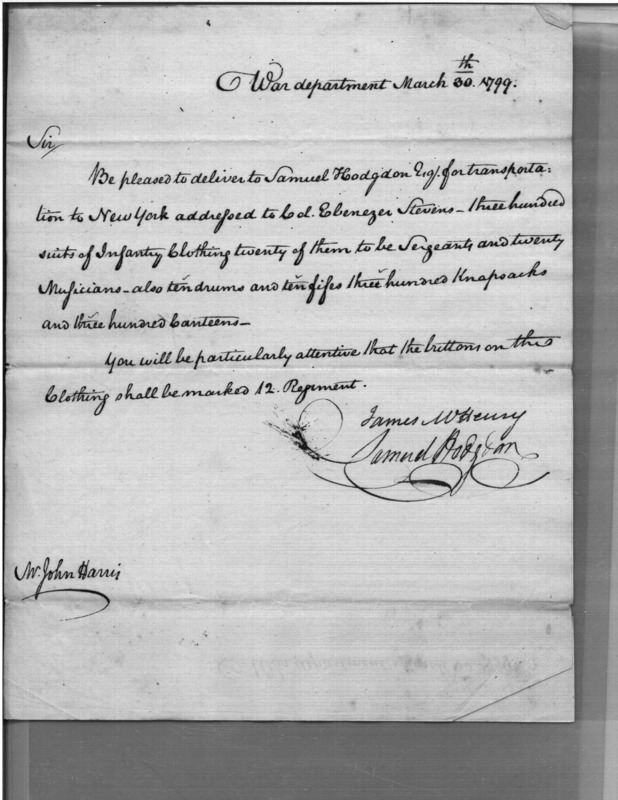 War department March 30.th 1799.
Sir/
Be pleased to deliver to Samuel Hodgdon Esq.r for transporta=
tion to New York addressed to Col. Ebenezer Stevens – three hundred
suits of Infantry Clothing twenty of them to be Sergeants and twenty
Musicians – also ten drums and ten fifes three hundred Knapsacks
and three hundred Canteens –
You will be particularly attentive that the buttons on this
Clothing shall be marked 12. Regiment.
James McHenry
Samuel Hodgdon
Mr. John Harris